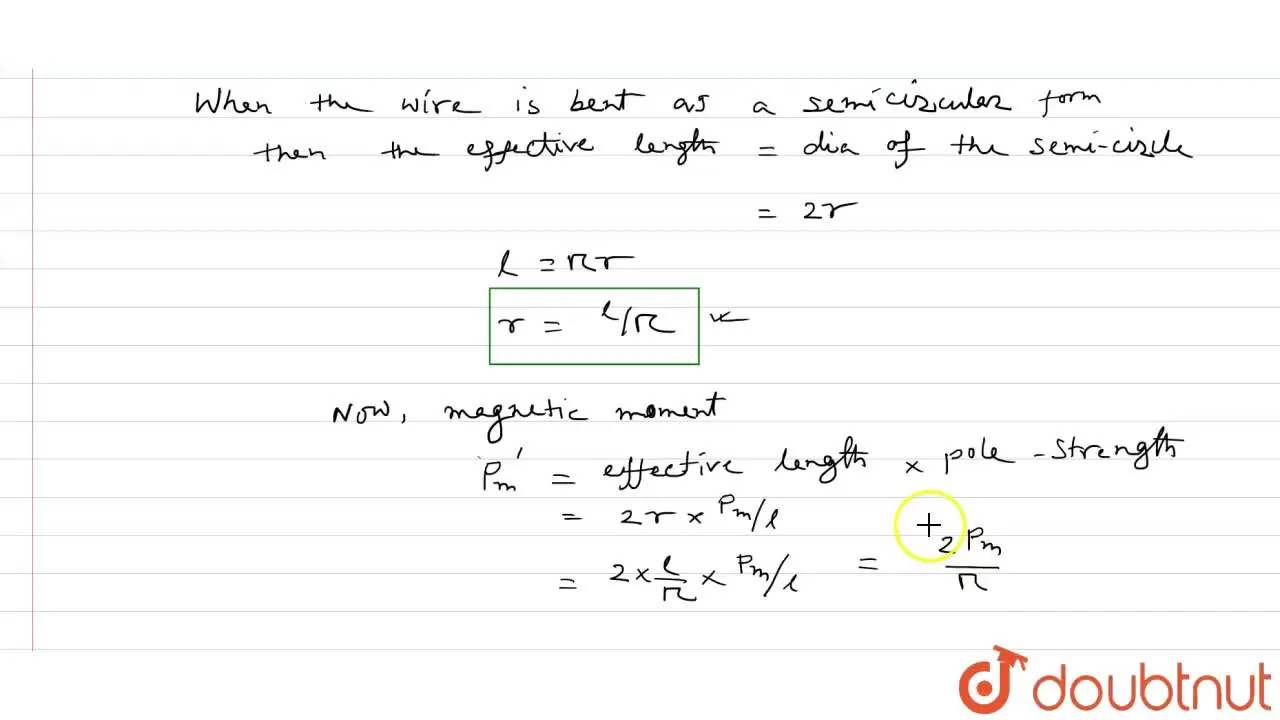 When the wire is bent as a semicircular form
then the effective length = dia of the semi-circle
= 2r
l = πr
r = l/π
Now, magnetic moment
Pm' = effective length × pole-strength
= 2r × Pm/l
= 2 × l/π × Pm/l = 2Pm/π
doubtnut